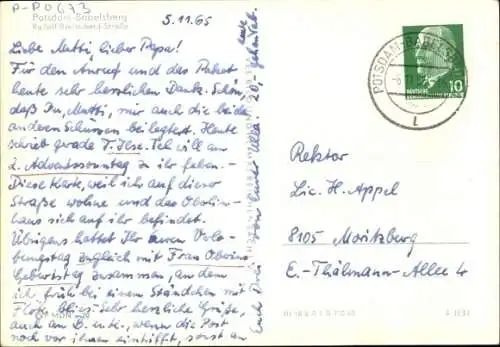 P-P0673
Potsdam-Babelsberg
Rudolf-Breitscheid-Straße
5.11.65
Liebe Mutti, lieber Papa!
Für den Anruf und das Paket
heute sehr herzlichen Dank. Schön,
daß Du, Mutti, mir auch die beiden
anderen Schürzen beilegtest. Heute
schrieb gerade T. Ilse. Ich will am
2. Adventssonntag zu ihr fahren.-
Diese Karte, weil ich auf dieser
Straße wohne und das Oberlin-
haus sich auf ihr befindet.
Übrigens hattet Ihr euren Verlo-
bungstag zugleich mit Frau
Geburtstag zusammen, an dem
ich früh bei einem Ständchen mit
Flöte blies. Sehr herzliche Grüße,
auch an wenn die Post
noch vor ihnen eintrifft, sonst an
Euch Drei von Eurer
20,- heute
POTSDAM-BABELSBERG
DEUTSCHE DEMOKRATISCHE REPUBLIK
10
Rektor
Lic. H. Appel
8105 Moritzburg
E.-Thälmann-Allee 4